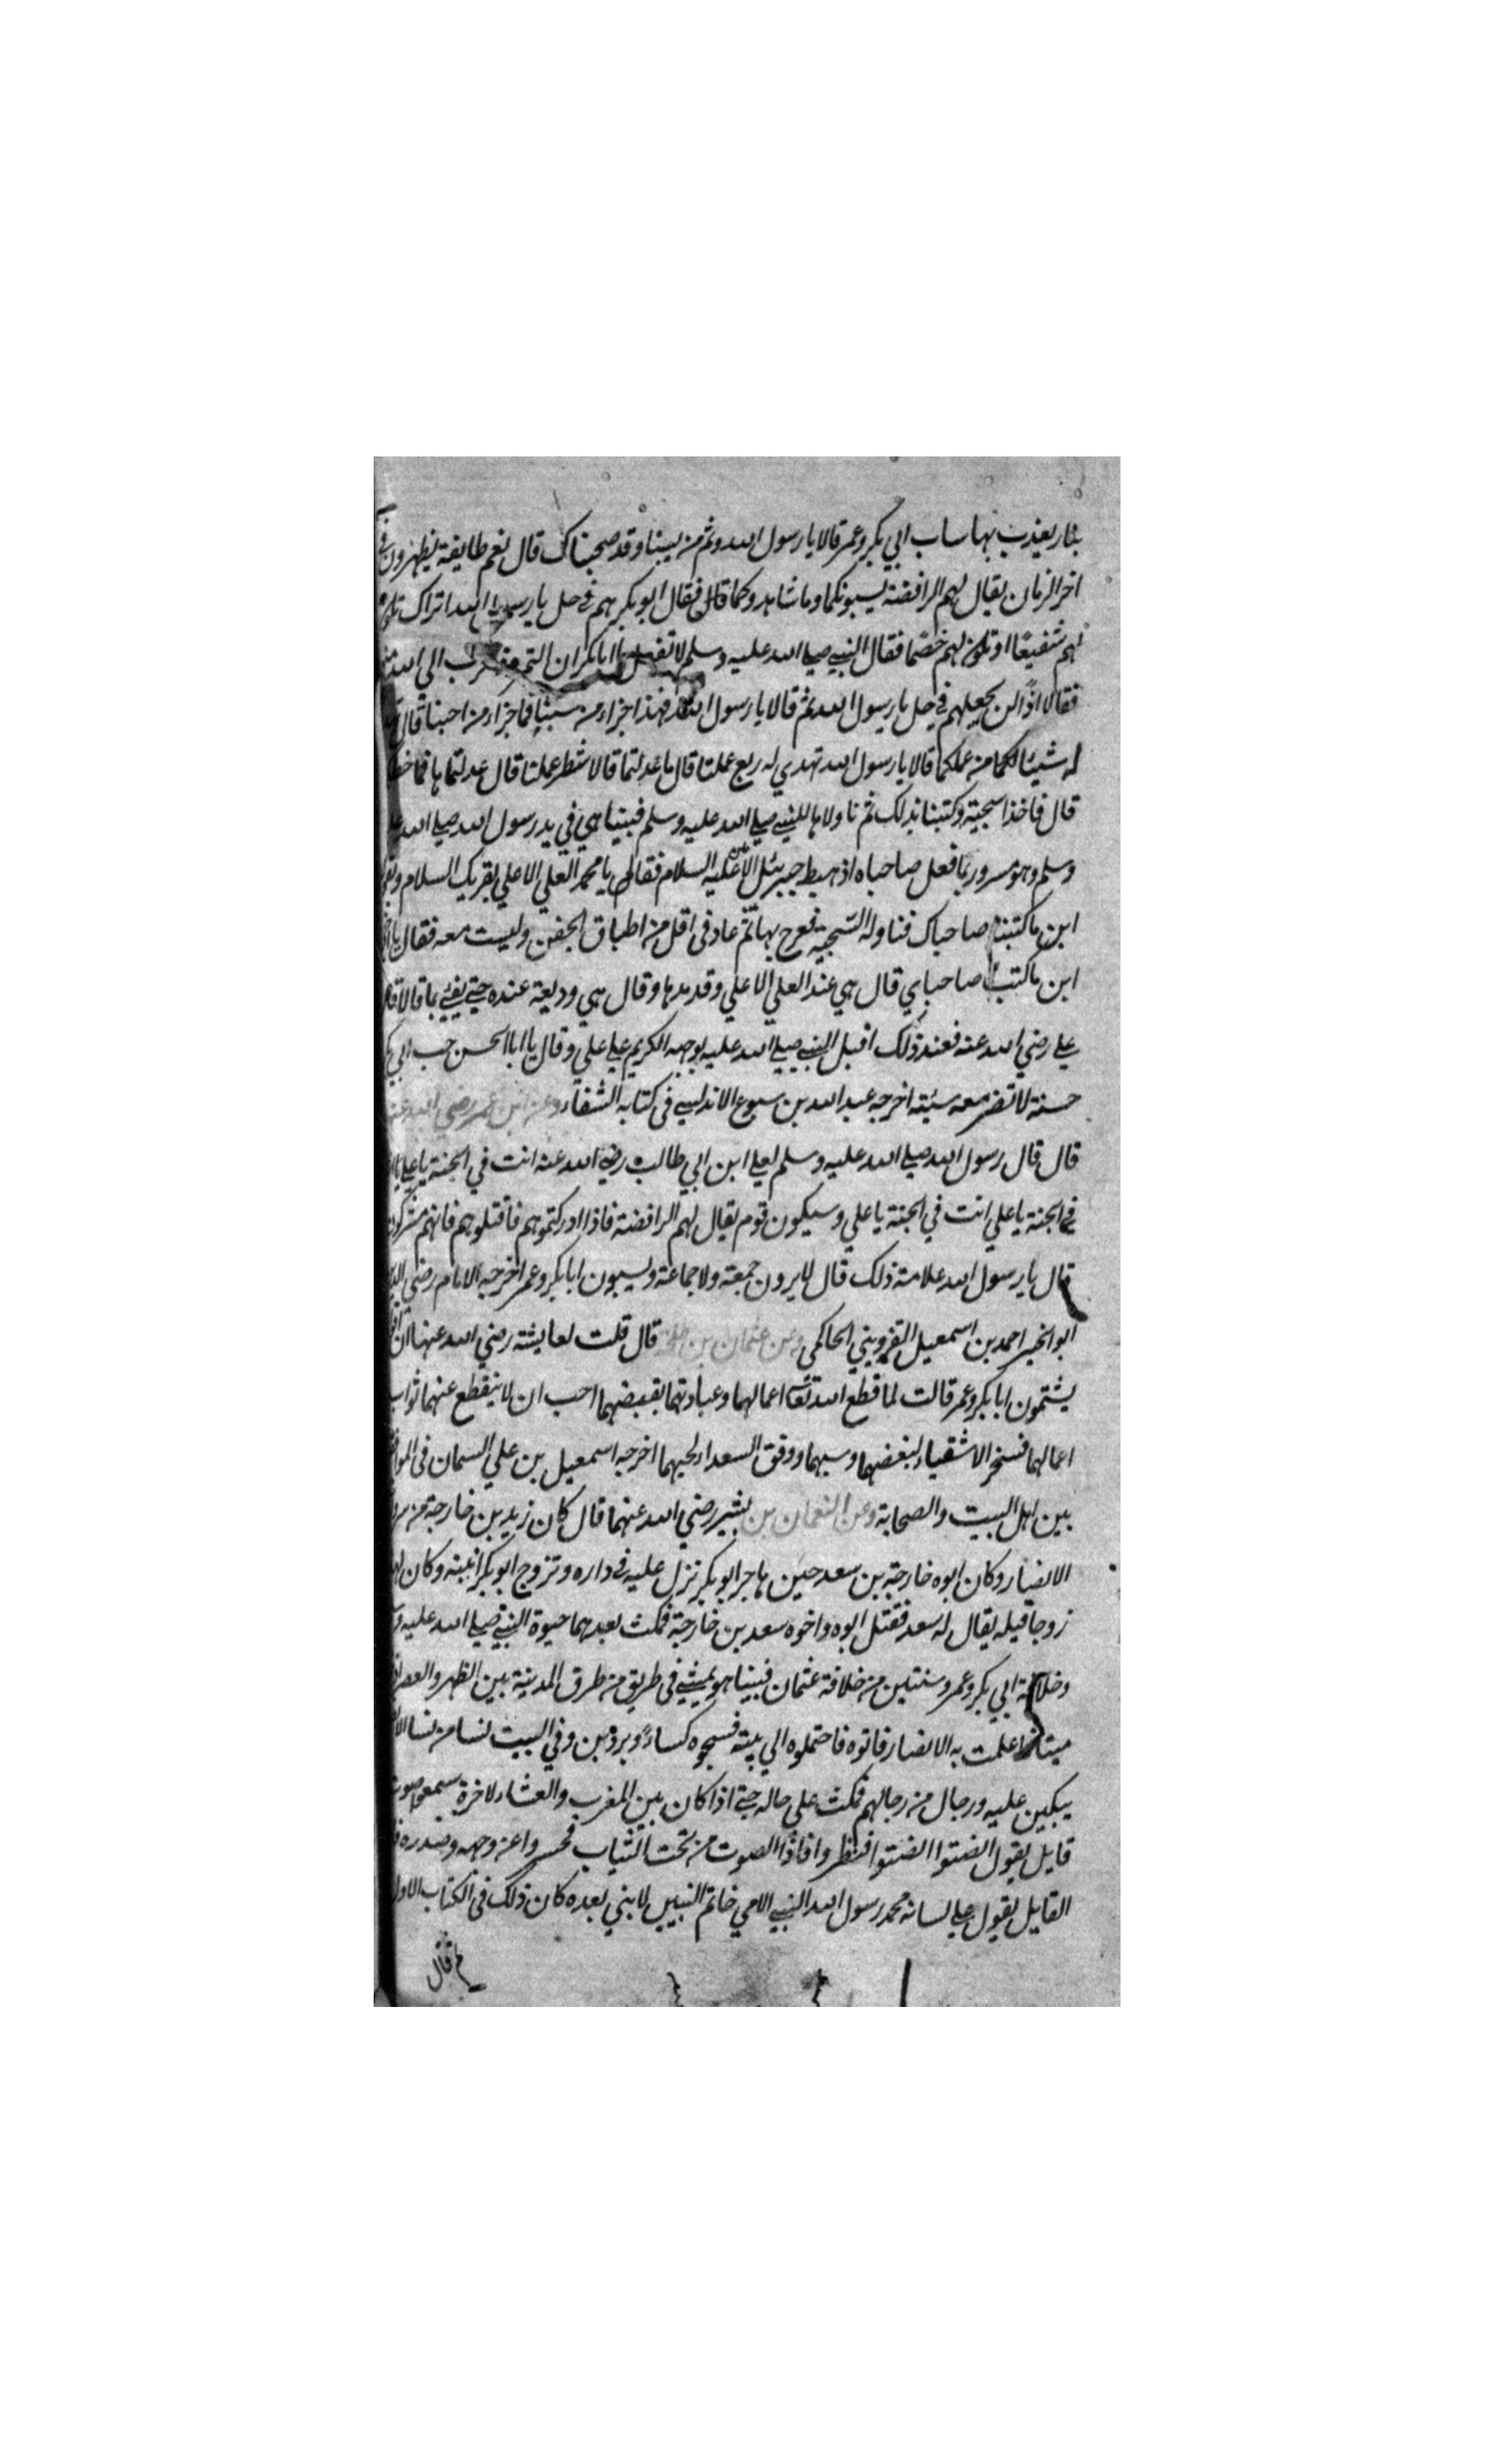 بنار يعذب بها ساب ابي بكر وعمر قالا يا رسول الله وثم من يسبنا وقد صحبناك قال نعم طايفة يظهرون في
اخر الزمان يقال لهم الرافضة يسبونكما وما شاهدوكما قال فقال ابو بكر هم في حل يا رسول الله اتراك تكون
لهم شفيعًا او تكون لهم خصمًا فقال النبي صلي الله عليه وسلم لا تفعل يا ابا بكر ان الى الله
فقالا اذًا لن نجعلهم في حل يا رسول الله ثم قالا يا رسول الله فهذا جزاء من سبنا فما جزاء من احبنا قال
له شيئا لكما من عملكما قالا يا رسول الله تهدي له ربع عملنا قال ما عدلتما قالا شطر عملنا قال عدلتما ها
قال فاخذا سجية وكتبنا بذلك ثم ناولاها للنبي صلي الله عليه وسلم فبينا هي في يد رسول الله صلي الله
وسلم وهو مسرور بما فعل صاحباه اذ هبط جبرئل الامين عليه السلام فقال له يا محمد العلي الاعلي يقريك السلام
اين ما كتبنا صاحباك فناوله السجية فعرج بها ثم عاد في اقل من اطباق الجفن وليست معه فقال يا
اين ما كتب صاحباي قال هي عند العلي الاعلي وقد مدها وقال هي وديعة عنده حتي يفئي بما قالا
علي رضي الله عنه فعند ذلك اقبل النبي صلي الله عليه بوجهه الكريم علي علي وقال يا ابا الحسن حب ابي
حسنة لا تضر معه سئية اخرجه عبد الله بن سبوع الاندلسي في كتابه الشفاء وعن ابن عمر رضي الله
قال قال رسول الله صلي الله عليه وسلم لعلي ابن ابي طالب رضي الله عنه انت في الجنة يا علي
في الجنة يا علي انت في الجنة يا علي وسيكون قوم يقال لهم الرافضة فاذا ادركتموهم فاقتلوهم فانهم مشركون
قال يا رسول الله علامة ذلك قال لا يرون جمعة ولا جماعة ويسبون ابا بكر وعمر اخرجه الامام رضي
ابو الخير احمد بن اسمعيل القزويني الحاكمي وعن عثمان بن طلحة قال قلت لعايشة رضي الله عنها ان
يشتمون ابا بكر وعمر قالت لما قطع الله تعالى اعمالهما وعبادتهما بقبضهما احب ان لا ينقطع عنهما ثواب
اعمالهما فسخر الاشقياء لبغضهما وسبهما ووفق السعداء لحبهما اخرجه اسمعيل بن علي السمان في
بين اهل البيت والصحابة وعن النعمان بن بشير رضي الله عنهما قال كان زيد بن خارجة من
الانصار وكان ابوه خارجة بن سعد حين هاجر ابو بكر نزل عليه في داره وتزوج ابو بكر ابنته وكان
زوجا قيله يقال له سعد فقتل ابوه واخوه سعد بن خارجة فمكث بعدهما حيوة النبي صلي الله عليه
وخلافة ابي بكر وعمر وسنتين من خلافة عثمان فبينا هو يمشي في طريق من طرق المدينة بين الظهر والعصر
ميتا فاعلمت به الانصار فاتوه فاحتملوه الي بيته فسجوه كساءً وبردين وفي البيت نسا من نسا
يبكين عليه ورجال من رجالهم فمكث علي حاله حتي اذا كان بين المغرب والعشاء لاخرة سمعوا صوت
قايل يقول انصتوا انصتوا فنظروا فاذا الصوت من تحت الثياب فحسروا عن وجهه وصدره
القايل يقول علي لسانه محمد رسول الله النبي الامي خاتم النبيين لا نبي بعده كان ذلك في الكتاب الاول
ثم قال